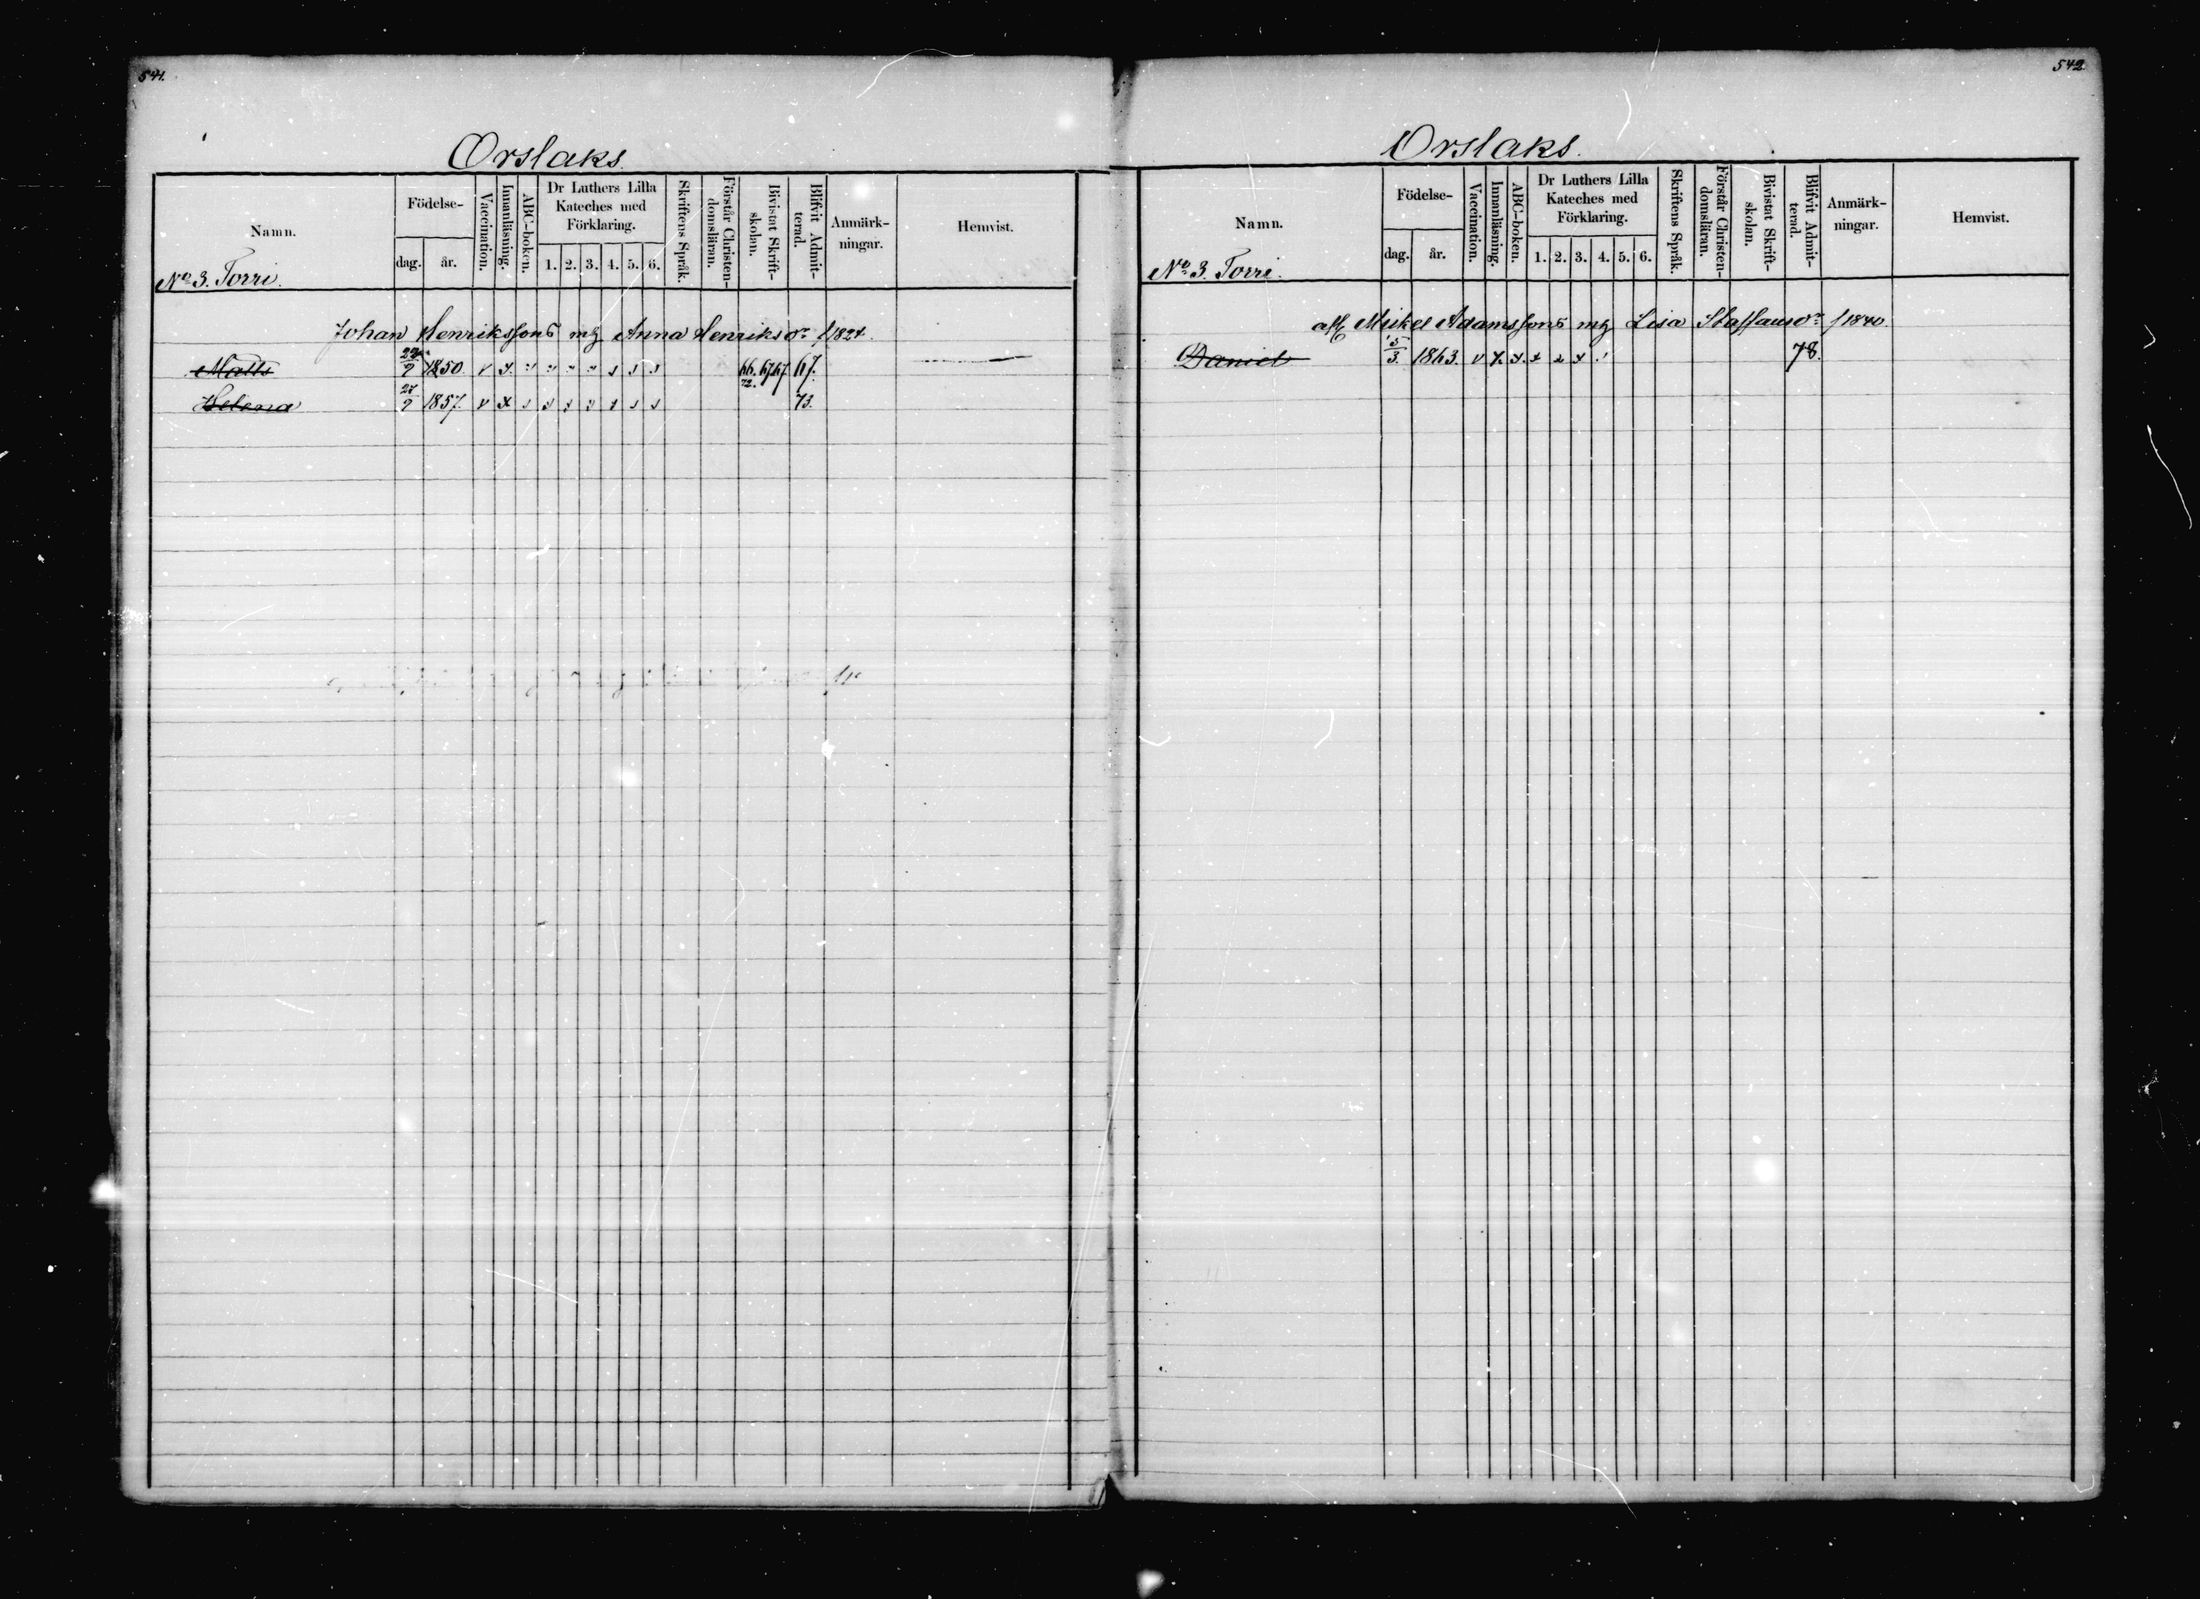 541.
Orslaks.
Namn.
Födelse-
dag. år.
Vaccination.
Innanläsning.
ABC-boken.
Dr Luthers Lilla Kateches med Förklaring.
1. 2. 3. 4. 5. 6.
Skriftens Språk.
Förstår Christen-domsläran.
Bivistat Skrift-skolan.
Blifvit Admit-terad.
Anmärk-ningar.
Hemvist.
No 3. Torri.
Johan Henrikssons m Anna Henriksdr f 1824.
Matts 1850. v 66. 67 67 67.
Helena 1857. v 72. 73.
542.
Orslaks.
Namn.
Födelse-
dag. år.
Vaccination.
Innanläsning.
ABC-boken.
Dr Luthers Lilla Kateches med Förklaring.
1. 2. 3. 4. 5. 6.
Skriftens Språk.
Förstår Christen-domsläran.
Bivistat Skrift-skolan.
Blifvit Admit-terad.
Anmärk-ningar.
Hemvist.
No 3. Torri.
Mickel Adamssons Lisa Staffansdr f 1840.
Daniel 5/3. 1863. v 78.